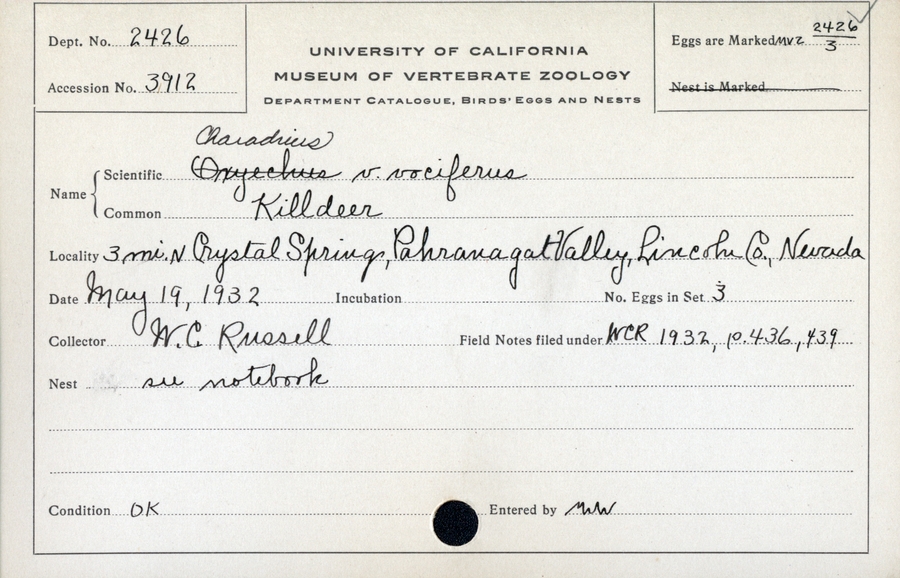 Dept. No. 2426
Accession No. 3912
UNIVERSITY OF CALIFORNIA
MUSEUM OF VERTEBRATE ZOOLOGY
DEPARTMENT CATALOGUE, BIRDS' EGGS AND NESTS
Eggs are Marked MVZ 2426/3
Nest is Marked
Charadrius
Name Scientific Oxyechus v. vociferus
Common Killdeer
Locality 3 mi. N Crystal Springs, Pahranagat Valley, Lincoln Co., Nevada
Date May 19, 1932 Incubation No. Eggs in Set 3
Collector W. C. Russell Field Notes filed under WCR 1932, p. 436, 439
Nest see notebook
Condition OK Entered by